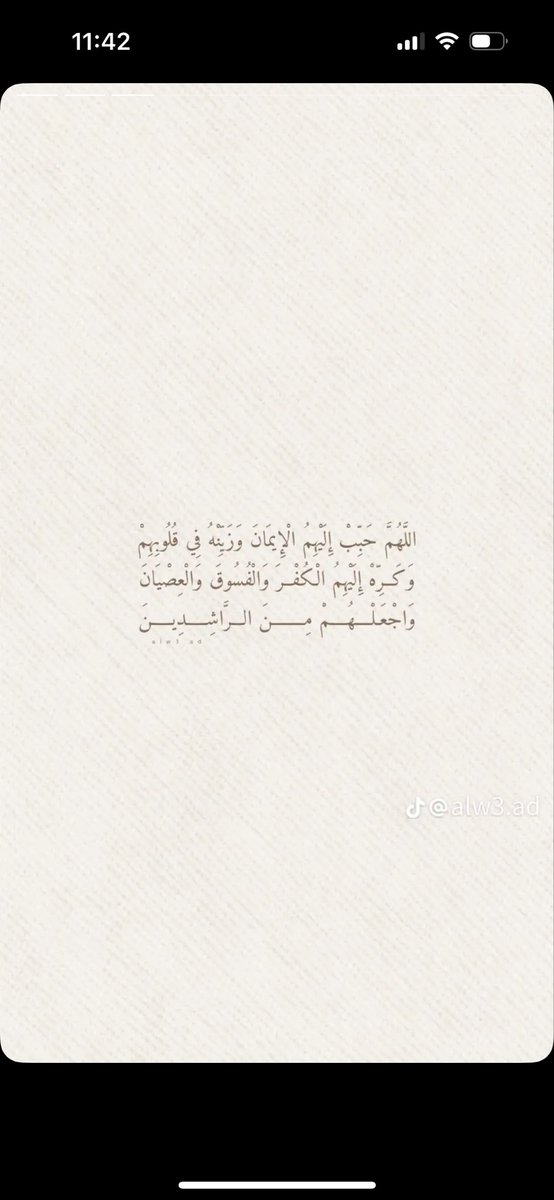 11:42
اللَّهُمَّ حَبِّبْ إِلَيْهِمُ الْإِيمَانَ وَزَيِّنْهُ فِي قُلُوبِهِمْ
وَكَــرِّهْ إِلَيْهِمُ الْكُفْــرَ وَالْفُسُوقَ وَالْعِصْيَانَ
وَاجْعَلْــهُــمْ مِــــنَ الــرَّاشِــدِيــنَ
alw3 ad
@alw3.ad